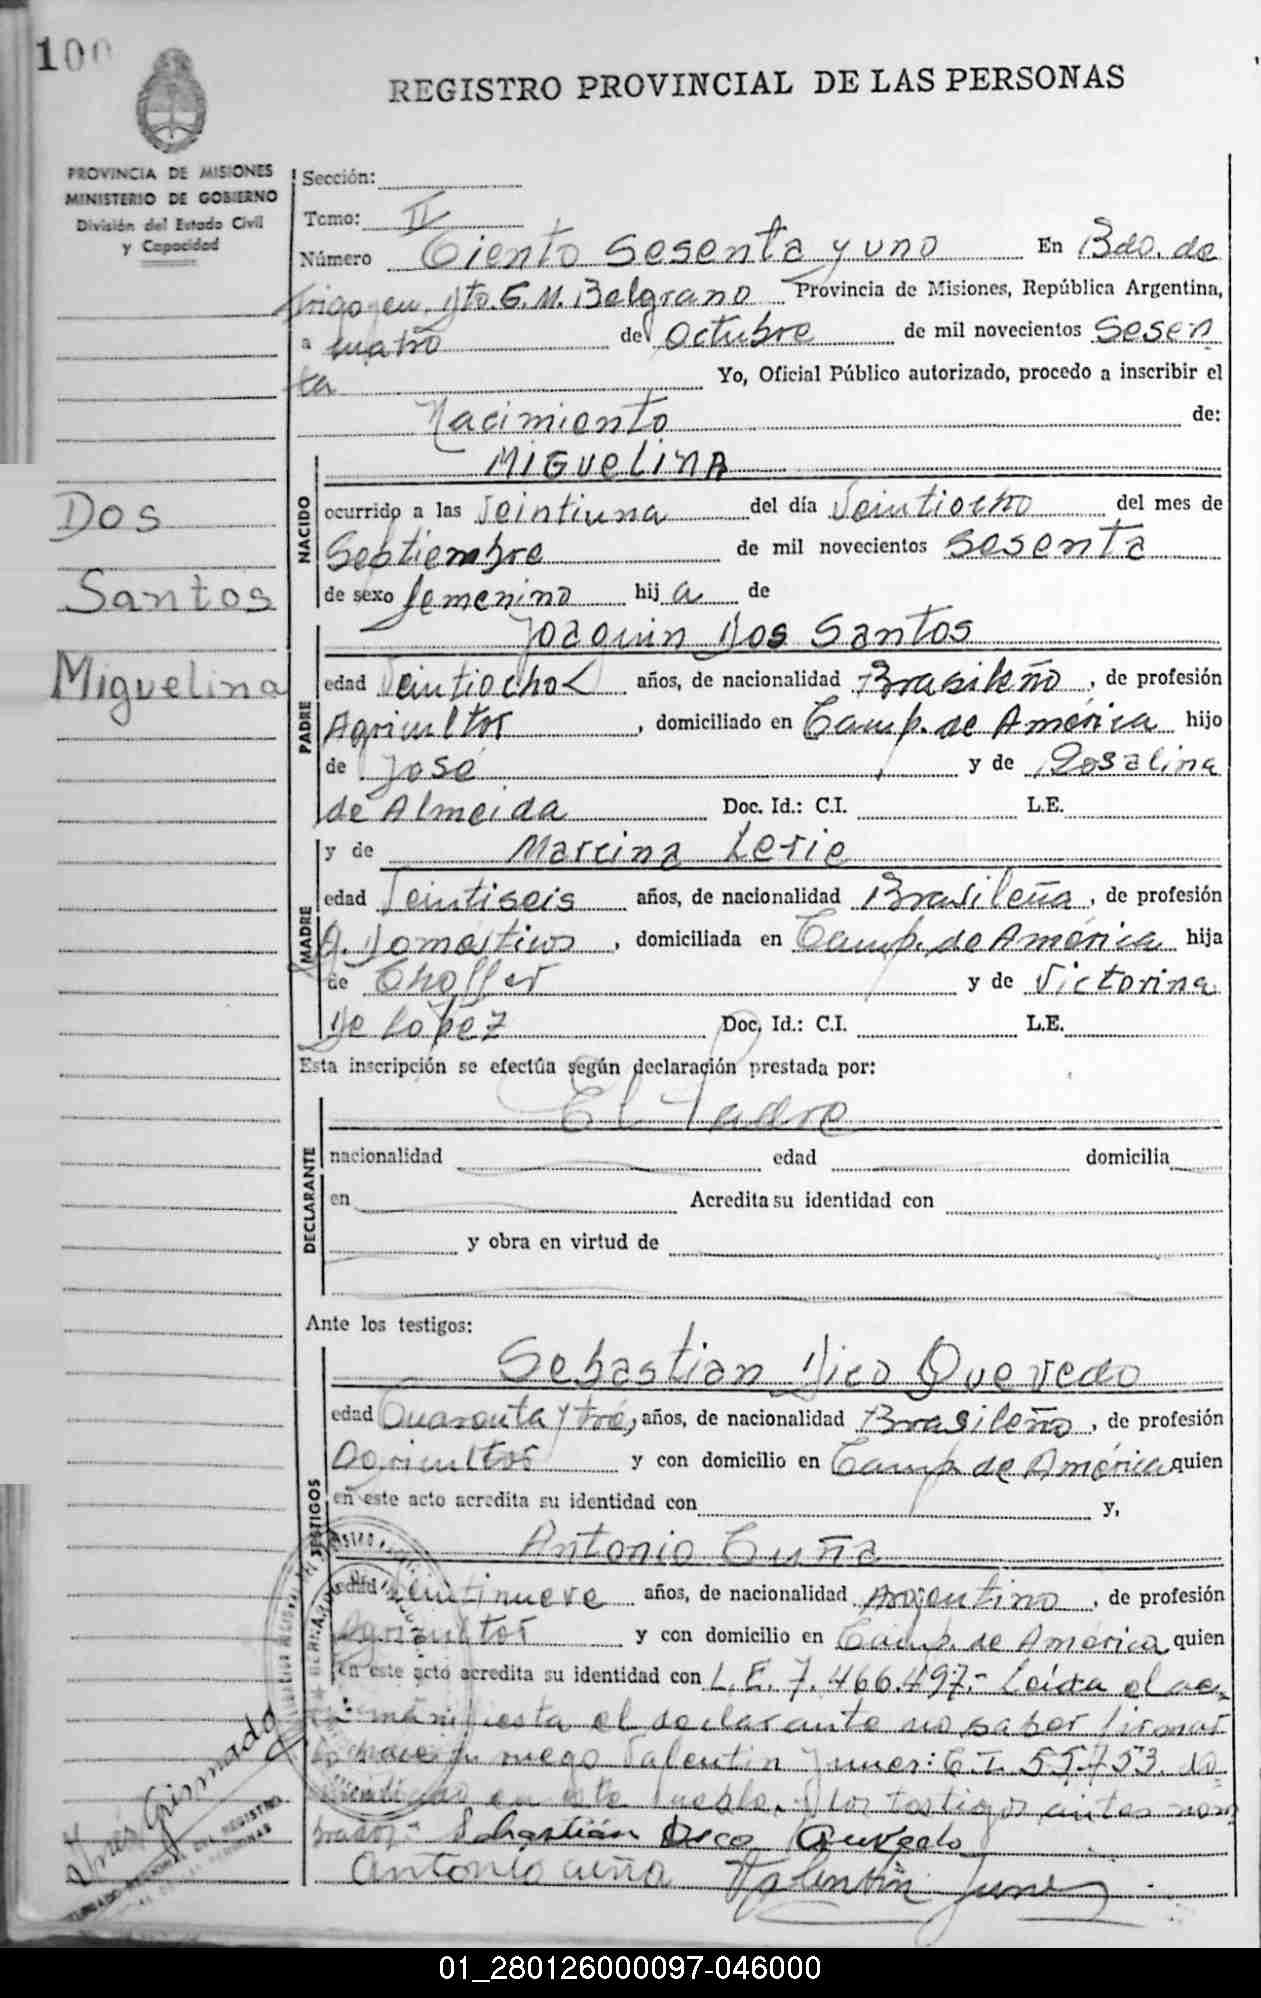 100
REGISTRO PROVINCIAL DE LAS PERSONAS
PROVINCIA DE MISIONES
MINISTERIO DE GOBIERNO
División del Estado Civil
y Capacidad
Dos
Santos
Miguelina
Sección:
Tomo: II
Número Ciento Sesenta y uno En Bdo. de
Irigoyen, Dto. G. M. Belgrano Provincia de Misiones, República Argentina,
a cuatro de Octubre de mil novecientos Sesen
ta Yo, Oficial Público autorizado, procedo a inscribir el
Nacimiento de:
NACIDO
MIGUELINA
ocurrido a las Veintiuna del día Veintiocho del mes de
Septiembre de mil novecientos Sesenta
de sexo femenino hij a de
PADRE
Joaquin Dos Santos
edad Veintiocho años, de nacionalidad Brasileño, de profesión
Agricultor, domiciliado en Camp. de América hijo
de José y de Rosalina
de Almeida Doc. Id.: C.I. L.E.
y de Marcina Lerie
MADRE
edad Veintiseis años, de nacionalidad Brasileña, de profesión
Q. Domésticos, domiciliada en Camp. de América hija
de Choffer y de Victorina
De Lopez Doc. Id.: C.I. L.E.
Esta inscripción se efectúa según declaración prestada por:
DECLARANTE
El Padre
nacionalidad edad domicilia
en Acredita su identidad con
y obra en virtud de
Ante los testigos:
TESTIGOS
Sebastian Dico Quevedo
edad Cuarenta y tres, años, de nacionalidad Brasileño, de profesión
Agricultor y con domicilio en Camp. de América quien
en este acto acredita su identidad con y,
Antonio Cuña
edad Veintinueve años, de nacionalidad Argentino, de profesión
Agricultor y con domicilio en Camp. de América quien
en este acto acredita su identidad con L. E. 7.466.497.- Leida el ac
ta manifiesta el declarante no saber firmar
ruego Valentin Junes: C.I. 55.753 do
en este Pueblo. y los testigos antes nom
brados.- Sebastián Dico Quevedo
Antonio cuña Valentin Junes
Inés Grismado
01_280126000097-046000